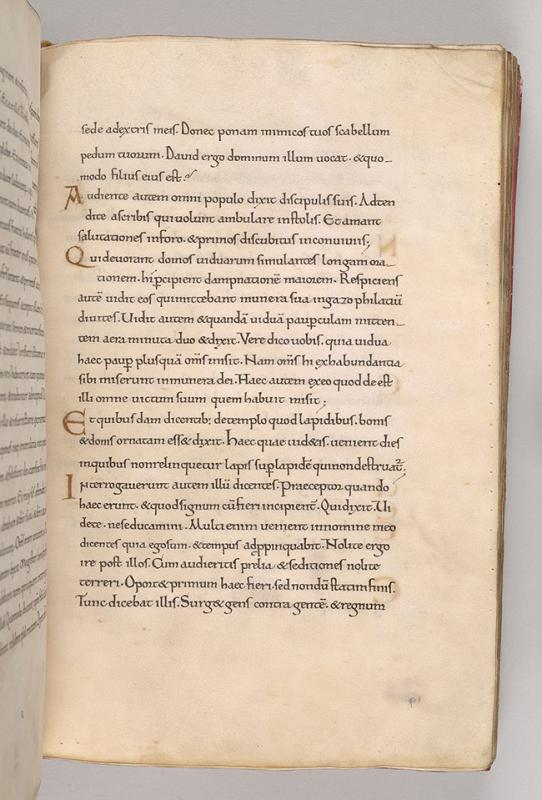 sede adextris meis. Donec ponam inimicos tuos scabellum
pedum tuorum. David ergo dominum illum vocat. &quo_
modo filius eius est.
Audiente autem omni populo dixit discipulis suis. Adten
dite ascribis qui volunt ambulare instolis. Et amant
salutationes inforo. &primos discubitus inconviviis;
Qui devorant domos viduarum simulantes longam ora_
tionem. hi p̄cipient dampnationē maiorem. Respiciens
autē vidit eos qui mittebant munera sua ingazophilatiū
divites. Vidit autem &quandā viduā paup̄culam mitten_
tem aera minuta duo &dixit. Vere dico vobis. quia vidua
haec paup̄ plusquā om̄s misit. Nam om̄s hi exhabundantia
sibi miserunt inmunera dei. Haec autem exeo quod deest
illi omne victum suum quem habuit misit;
Et quibusdam dicentib; detemplo quod lapidibus. bonis
&donis ornatum ess& dixit. Haec quae vid&is. venient dies
inquibus nonrelinquetur lapis sup̄lapidē qui nondestruat̄;
Interrogaverunt autem illū dicentes. Praeceptor quando
haec erunt. &quod signum cūfieri incipient. Qui dixit. Vi
dete. neseducamini. Multi enim venient innomine meo
dicentes quia egosum. &tempus adp̄pinquabit. Nolite ergo
ire post illos. Cum audieritis prelia &seditiones nolite
terreri. Oport& primum haec fieri. sed nondū statim finis.
Tunc dicebat illis. Surg& gens contra gentē. &regnum